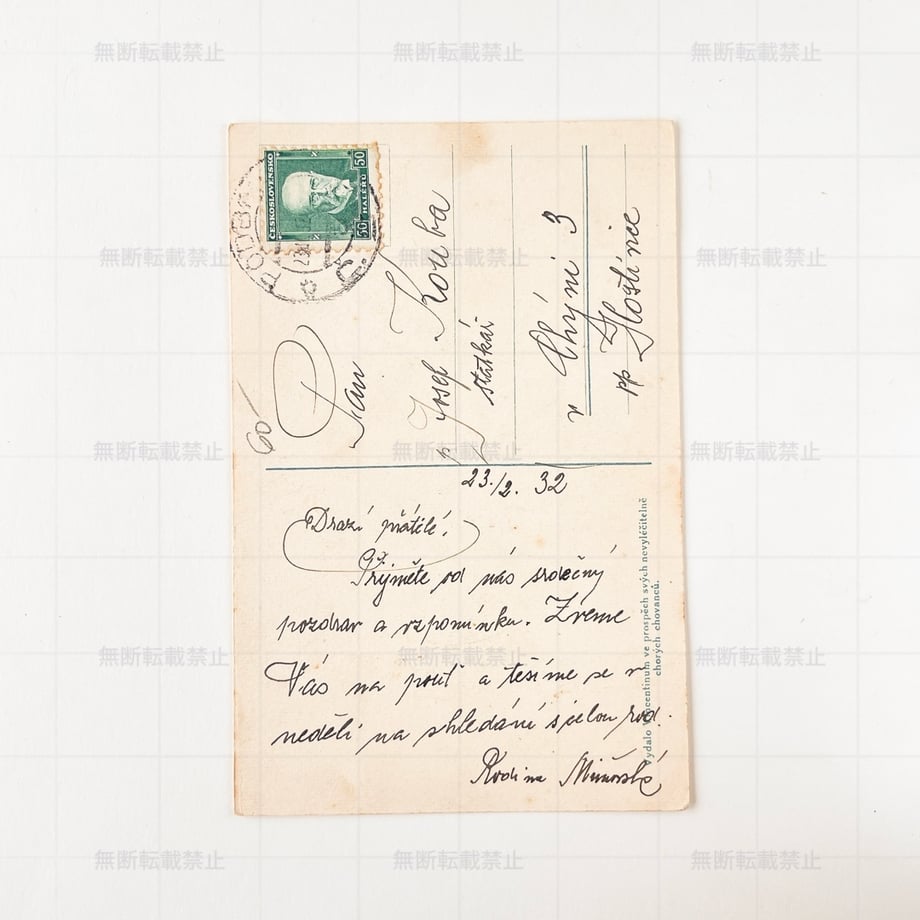 ČESKOSLOVENSKO
50 HALÉŘŮ 50
Pan
Josef Kouba
statkář
v Chýni 3
pp Hostinice
60
23./2. 32
Drazí přátelé!
Přijměte od nás srdečný
pozdrav a vzpomínku. Zveme
Vás na pouť a těšíme se v
neděli na shledání s celou rod.
Rodina
Vydalo Vincentinum ve prospěch svých nevyléčitelně
chorých chovanců.
無断転載禁止 無断転載禁止 無断転載禁止
無断転載禁止 無断転載禁止 無断転載禁止
無断転載禁止 無断転載禁止 無断転載禁止
無断転載禁止 無断転載禁止 無断転載禁止
無断転載禁止 無断転載禁止 無断転載禁止